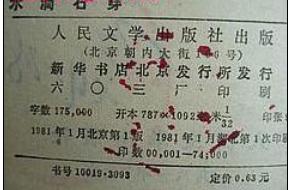 水滴石穿
人民文学出版社出版
(北京朝内大街166号)
新华书店北京发行所发行
六〇三厂印刷
字数175,000 开本787×1092毫米1/32 印张
1981年6月北京第1版 1981年 月湖北第1次印
印数00,001-74,000
书号10019·3093 定价0.63元